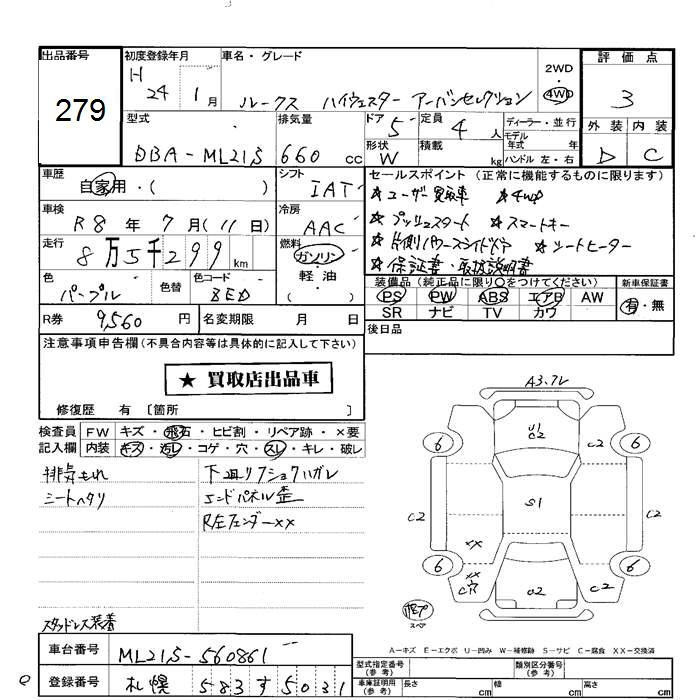 出品番号 279
初度登録年月 H 24年 1月
車名・グレード ルークス ハイウェスター アーバンセレクション
2WD・4WD
評価点 3
型式 DBA-ML21S
排気量 660 cc
ドア 5
定員 4人
ディーラー・並行
モデル年式 年
外装 D
内装 C
形状 W
積載 kg
ハンドル 左・右
車歴 自家用・( )
シフト IAT
セールスポイント (正常に機能するものに限ります)
★ユーザー買取車 ★4WD
★プッシュスタート ★スマートキー
★片側パワースライドドア ★シートヒーター
★保証書・取扱説明書
車検 R8年 7月(11日)
冷房 AAC
走行 8万5千299km
燃料 ガソリン・軽油・( )
色 パープル
色替
色コード ZED
装備品 (純正品に限り○をつけてください)
PS PW ABS エアB AW
SR ナビ TV カワ
新車保証書 有・無
R券 9,560円
名変期限 月 日
後日品
注意事項申告欄(不具合内容等は具体的に記入して下さい)
★ 買取店出品車
修復歴 有 〔箇所 〕
検査員記入欄
FW キズ・飛石・ヒビ割・リペア跡・×要
内装 キズ・汚レ・コゲ・穴・スレ・キレ・破レ
排気もれ
シートヘタリ
下廻リフショクハガレ
エンドパネル歪
R/左フェンダーxx
スタッドレス装着
A3.7V
U1
C2
C2
6
6
C2
S1
C2
xx
xx
6
6
C2
C2
スペア
A=キズ E=エクボ U=凹み W=補修跡 S=サビ C=腐食 XX=交換済
車台番号 ML21S-560861
登録番号 札幌 583 す 5031
型式指定番号(参考)
類別区分番号(参考)
車庫証明用(参考) 長さ cm 幅 cm 高さ cm